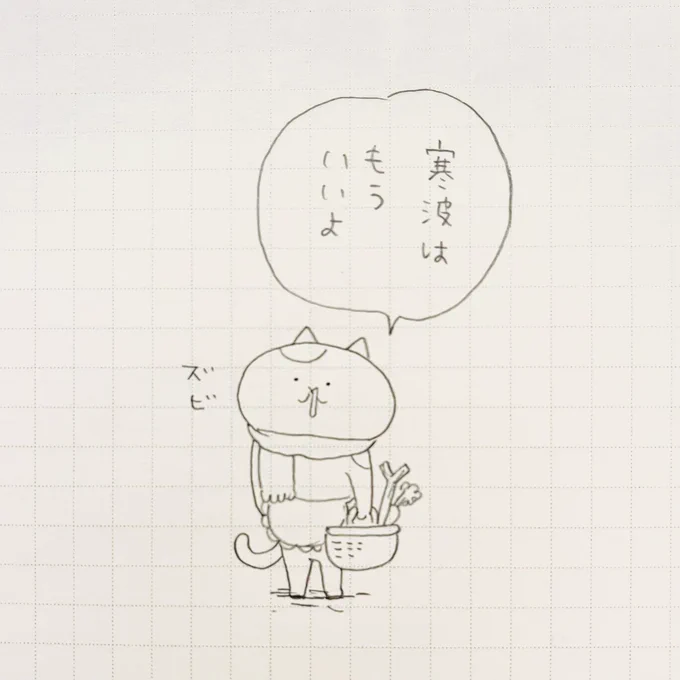 寒波は
もう
いいよ
ズビ